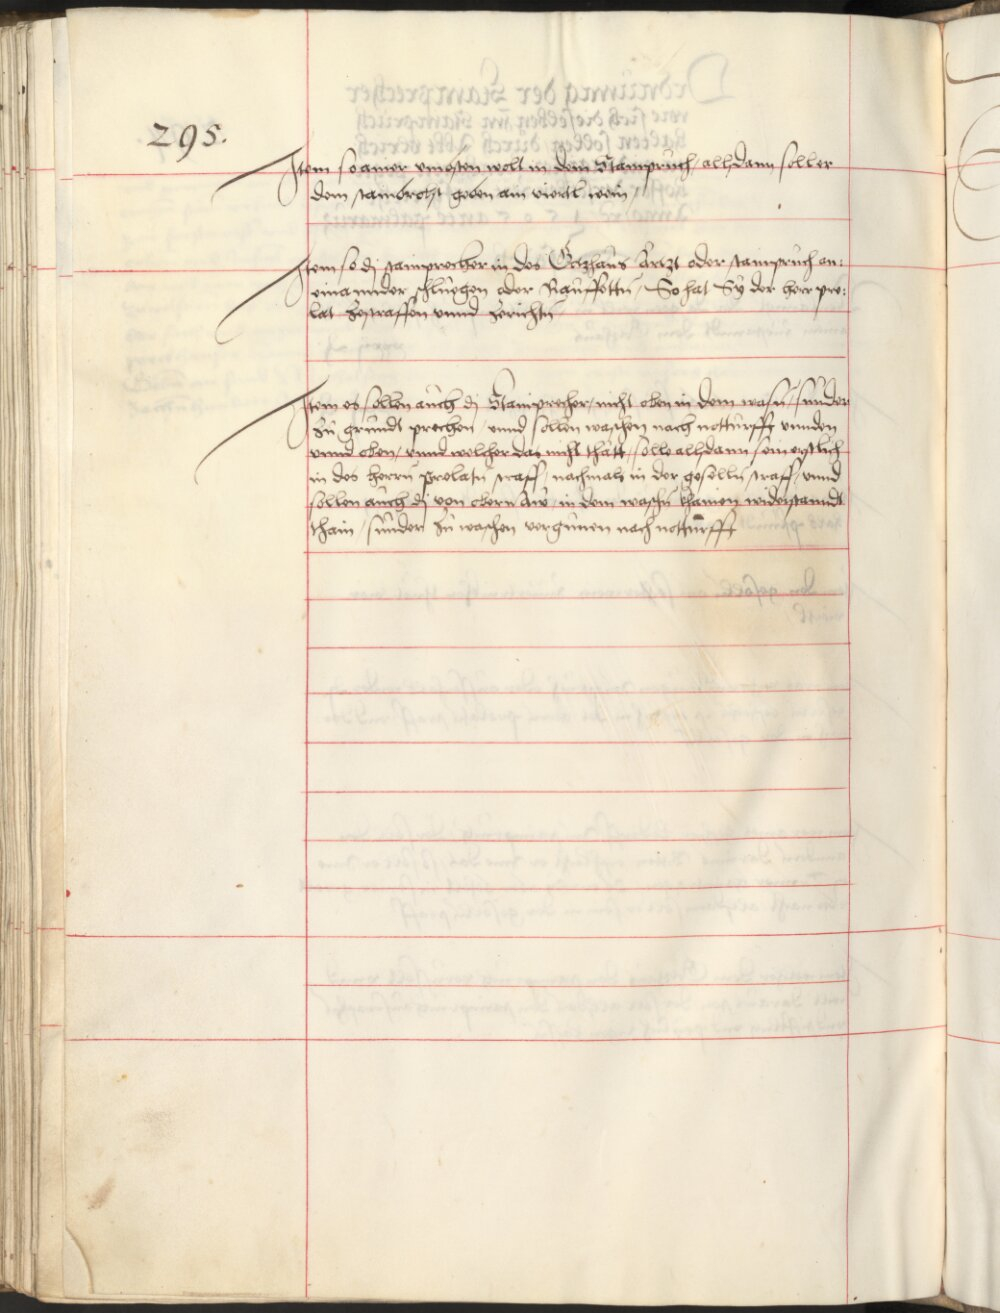 295.
Item so ainer vmbsten wolt in dem Stainpruch, allsdann soll er
dem stainbrecht geben ain viertl wein /
Item so dj stainprecher in des Gotzhaus Arczt oder stainpruch an:
einannder schluegen oder Raufften / So hat Sy der herr pre:
lat zestraffen vnnd zerichtn
Item es sollen auch dj Stainprecher / nicht oben in dem wasn / sunder
zu grundt prechen / vnnd sollen waschen nach notturfft vnnden
vnnd oben / vnnd welcher das nicht thätt / solle allsdann sein erstlich
in des herrn prelatn straff / nachmals in der geselln straff / vnnd
sollen auch dj von obern Aw / in dem waschn khainen widerstanndt
thain / sunder zu waschen vergunen nach notturfft